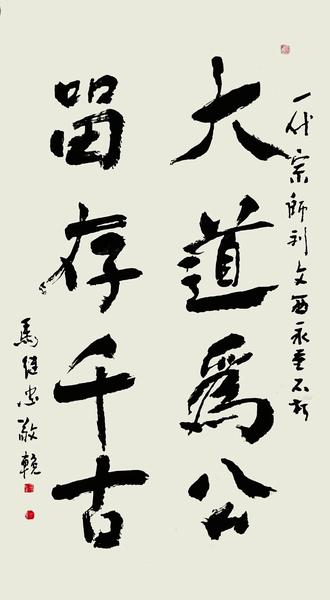 一代宗師利文西永垂不朽
大道為公
留存千古
馬继忠敬輓